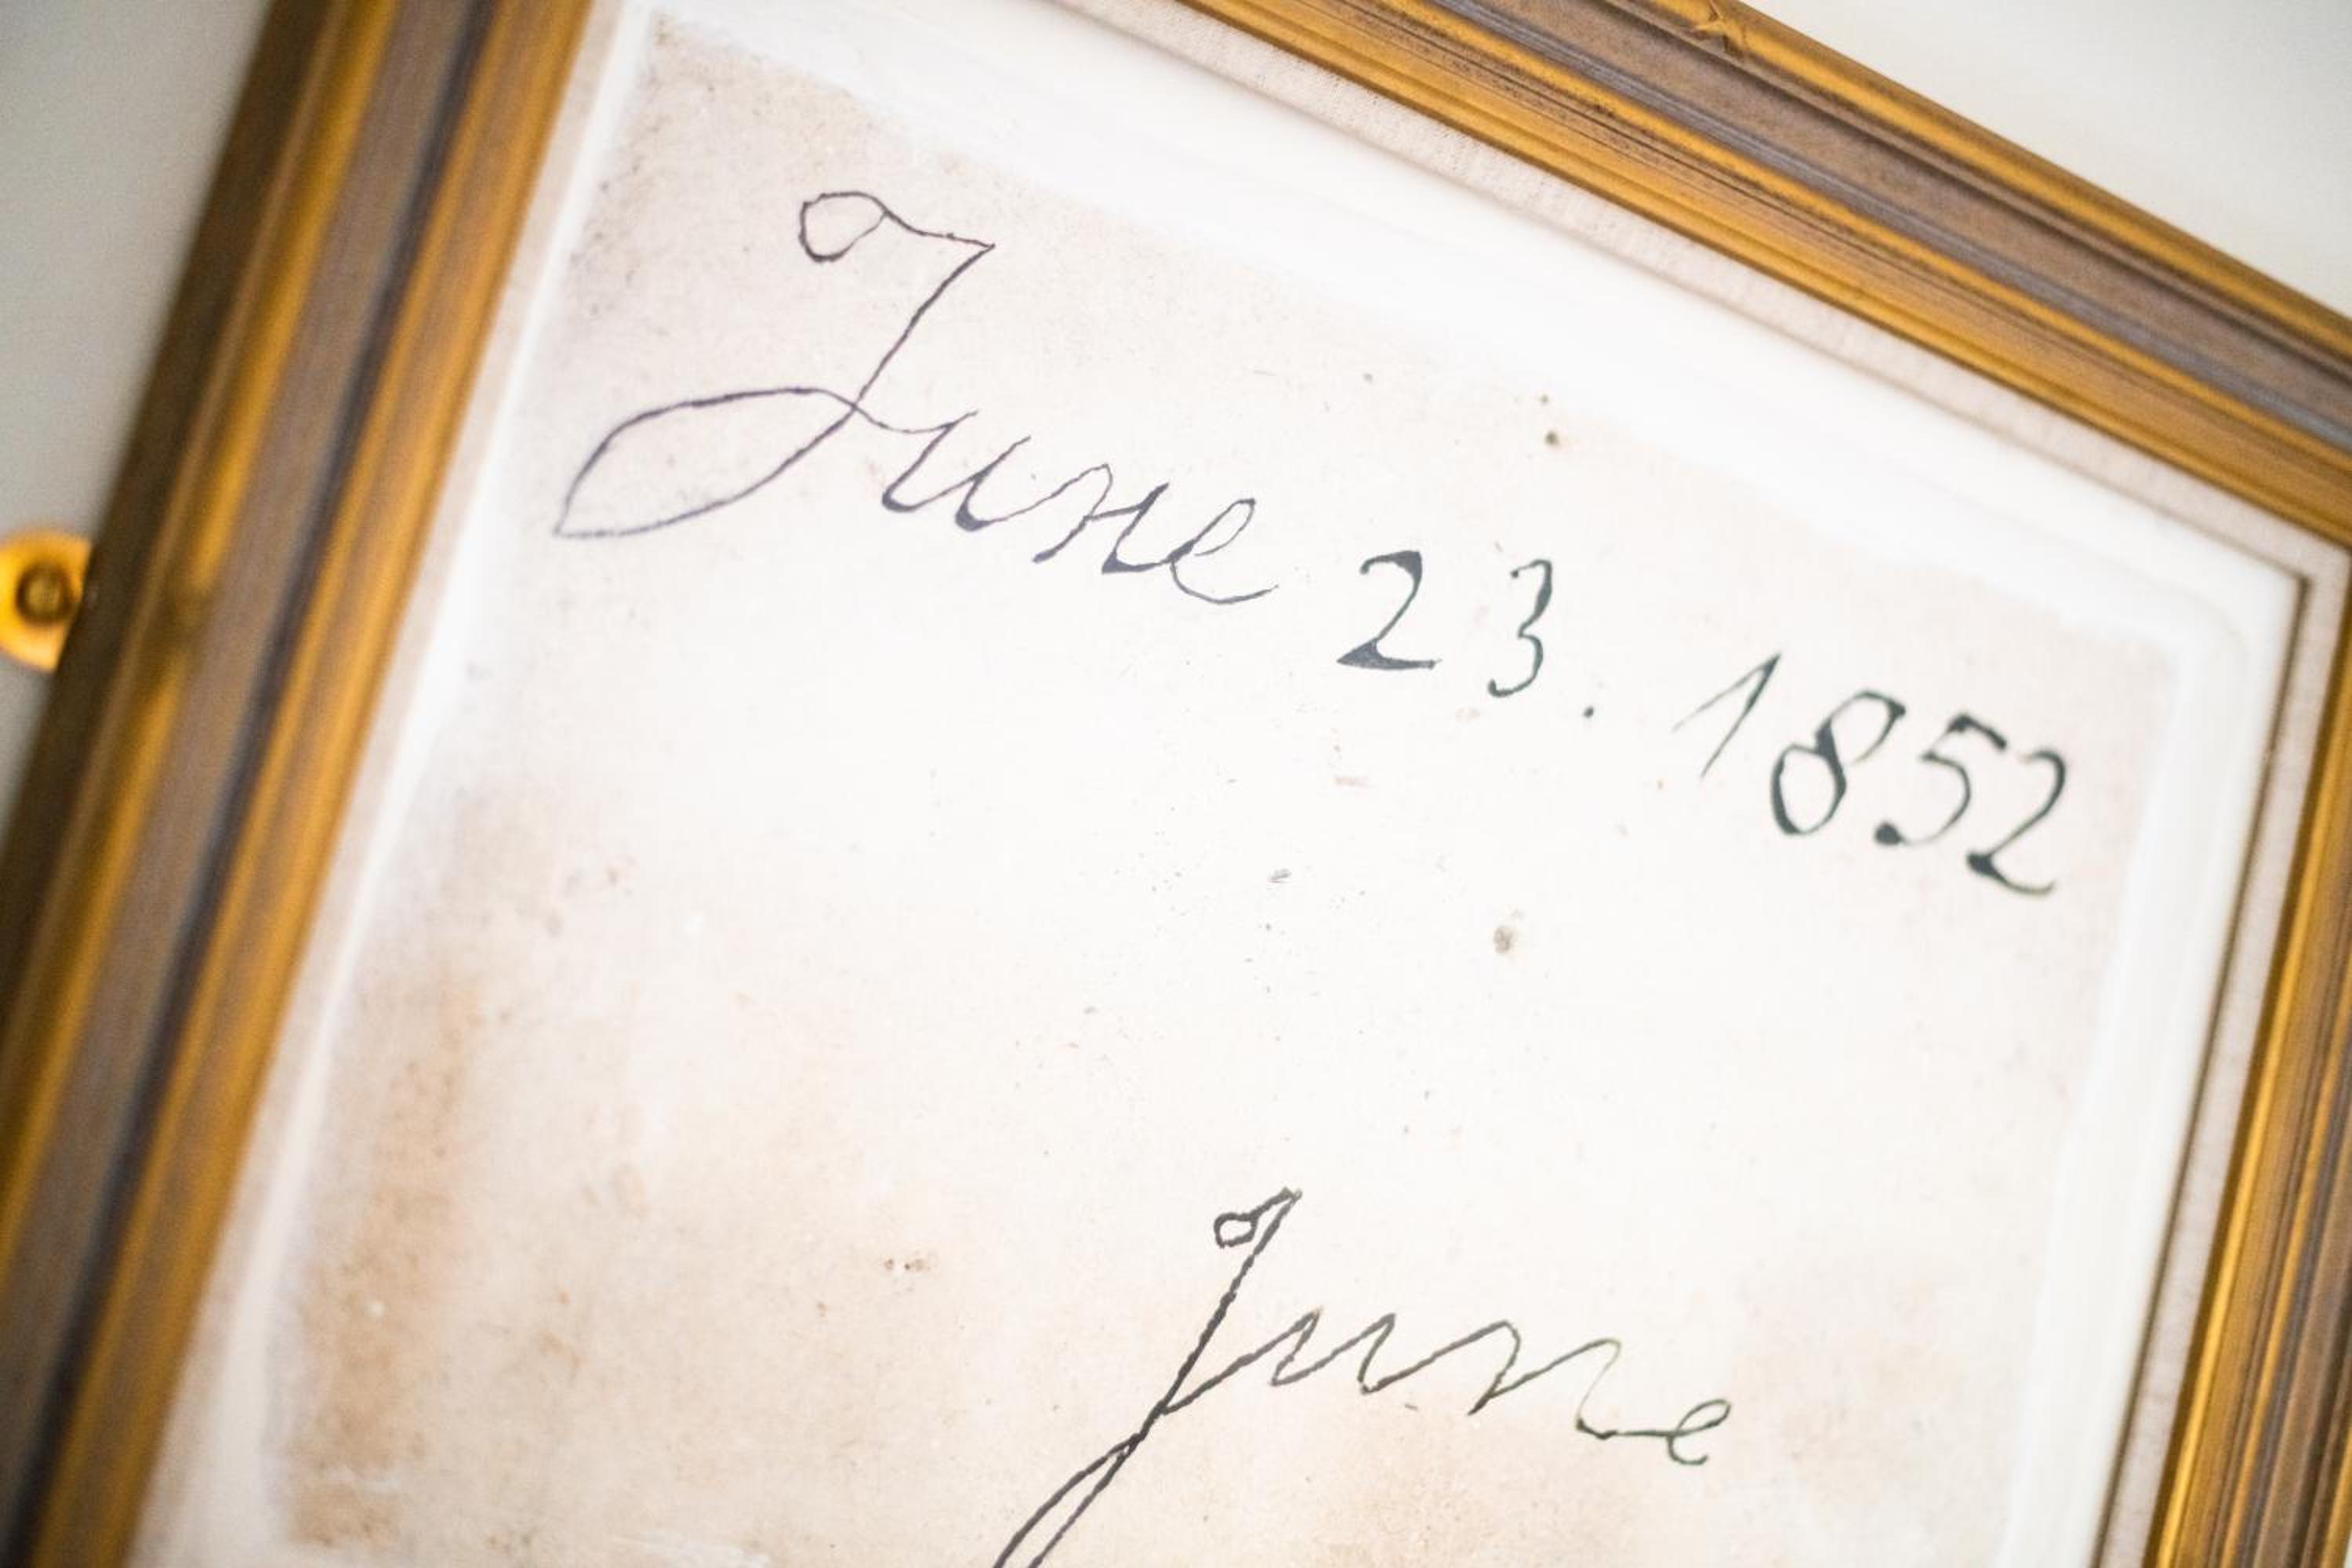 June 23. 1852
June